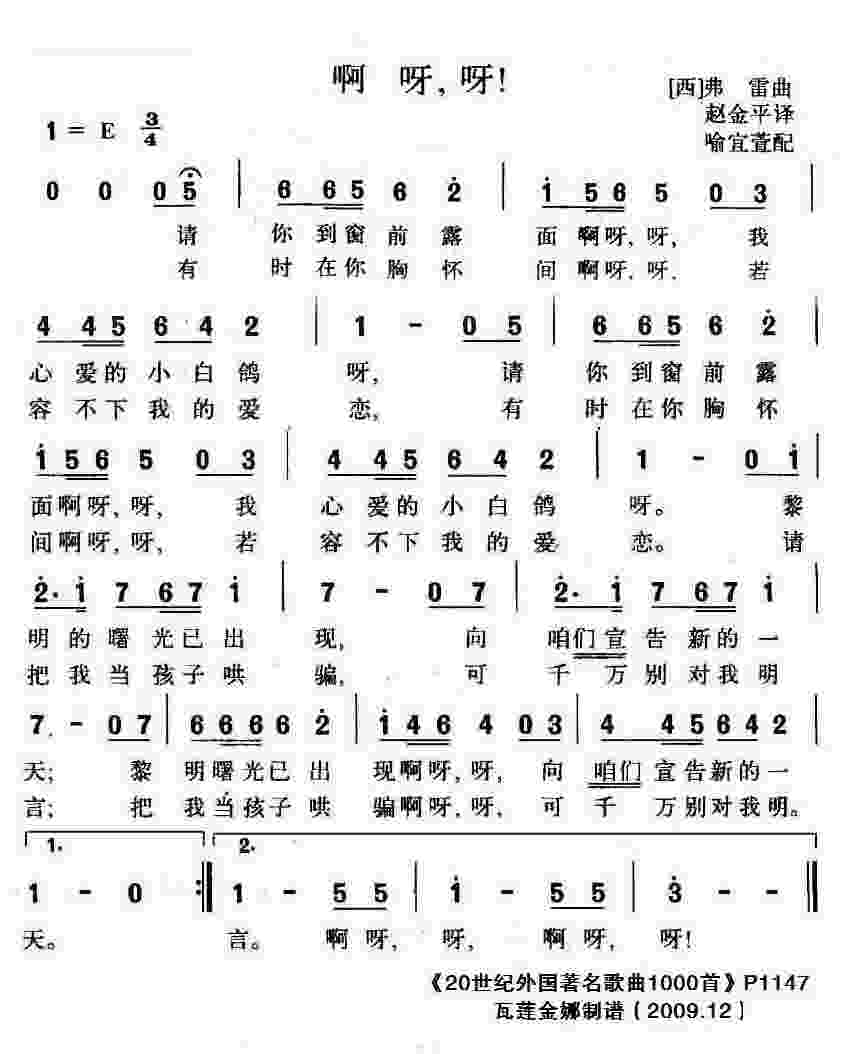 啊 呀,呀!
[西]弗 雷曲
赵金平译
喻宜萱配
1 = E 3/4
0 0 0 5 | 6 6 6 5 6 2 | 1 5 6 5 0 3 |
请 你 到 窗 前 露 面 啊呀, 呀, 我
有 时 在 你 胸 怀 间 啊呀, 呀. 若
4 4 5 6 4 2 | 1 - 0 5 | 6 6 5 6 2 |
心 爱 的 小 白 鸽 呀, 请 你 到 窗 前 露
容 不 下 我 的 爱 恋, 有 时 在 你 胸 怀
1 5 6 5 0 3 | 4 4 5 6 4 2 | 1 - 0 1 |
面 啊 呀, 呀, 我 心 爱 的 小 白 鸽 呀。 黎
间 啊 呀, 呀, 若 容 不 下 我 的 爱 恋。 请
2· 1 7 6 7 1 | 7 - 0 7 | 2· 1 7 6 7 1 |
明 的 曙 光 已 出 现, 向 咱们 宣 告 新 的 一
把 我 当 孩 子 哄 骗, 可 千 万 别 对 我 明
7. - 0 7 | 6 6 6 6 6 2 | 1 4 6 4 0 3 | 4 4 5 6 4 2 |
天; 黎 明 曙 光 已 出 现 啊 呀, 呀, 向 咱们 宣 告 新 的 一
言; 把 我 当 孩 子 哄 骗 啊 呀, 呀, 可 千 万 别 对 我 明。
1. 2.
1 - 0 :| 1 - 5 5 | 1 - 5 5 | 3 - - |
天。 言。 啊 呀, 呀, 啊 呀, 呀!
《20世纪外国著名歌曲1000首》P1147
瓦莲金娜制谱〔2009.12〕